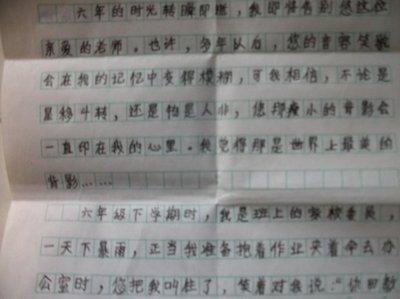 六年的时光转瞬即逝,我即将告别您这位
亲爱的老师。也许,多年以后,您的音容笑貌
会在我的记忆中变得模糊,可我相信,不论是
星移斗转,还是怕是人非,您那瘦小的背影会
一直印在我的心里。我觉得那是世界上最美的
背影……
六年级下学期时,我是班上的委员,
一天下暴雨,正当我准备抱着作业夹着伞去办
公室时,您把我叫住了,笑着对我说:“你回教